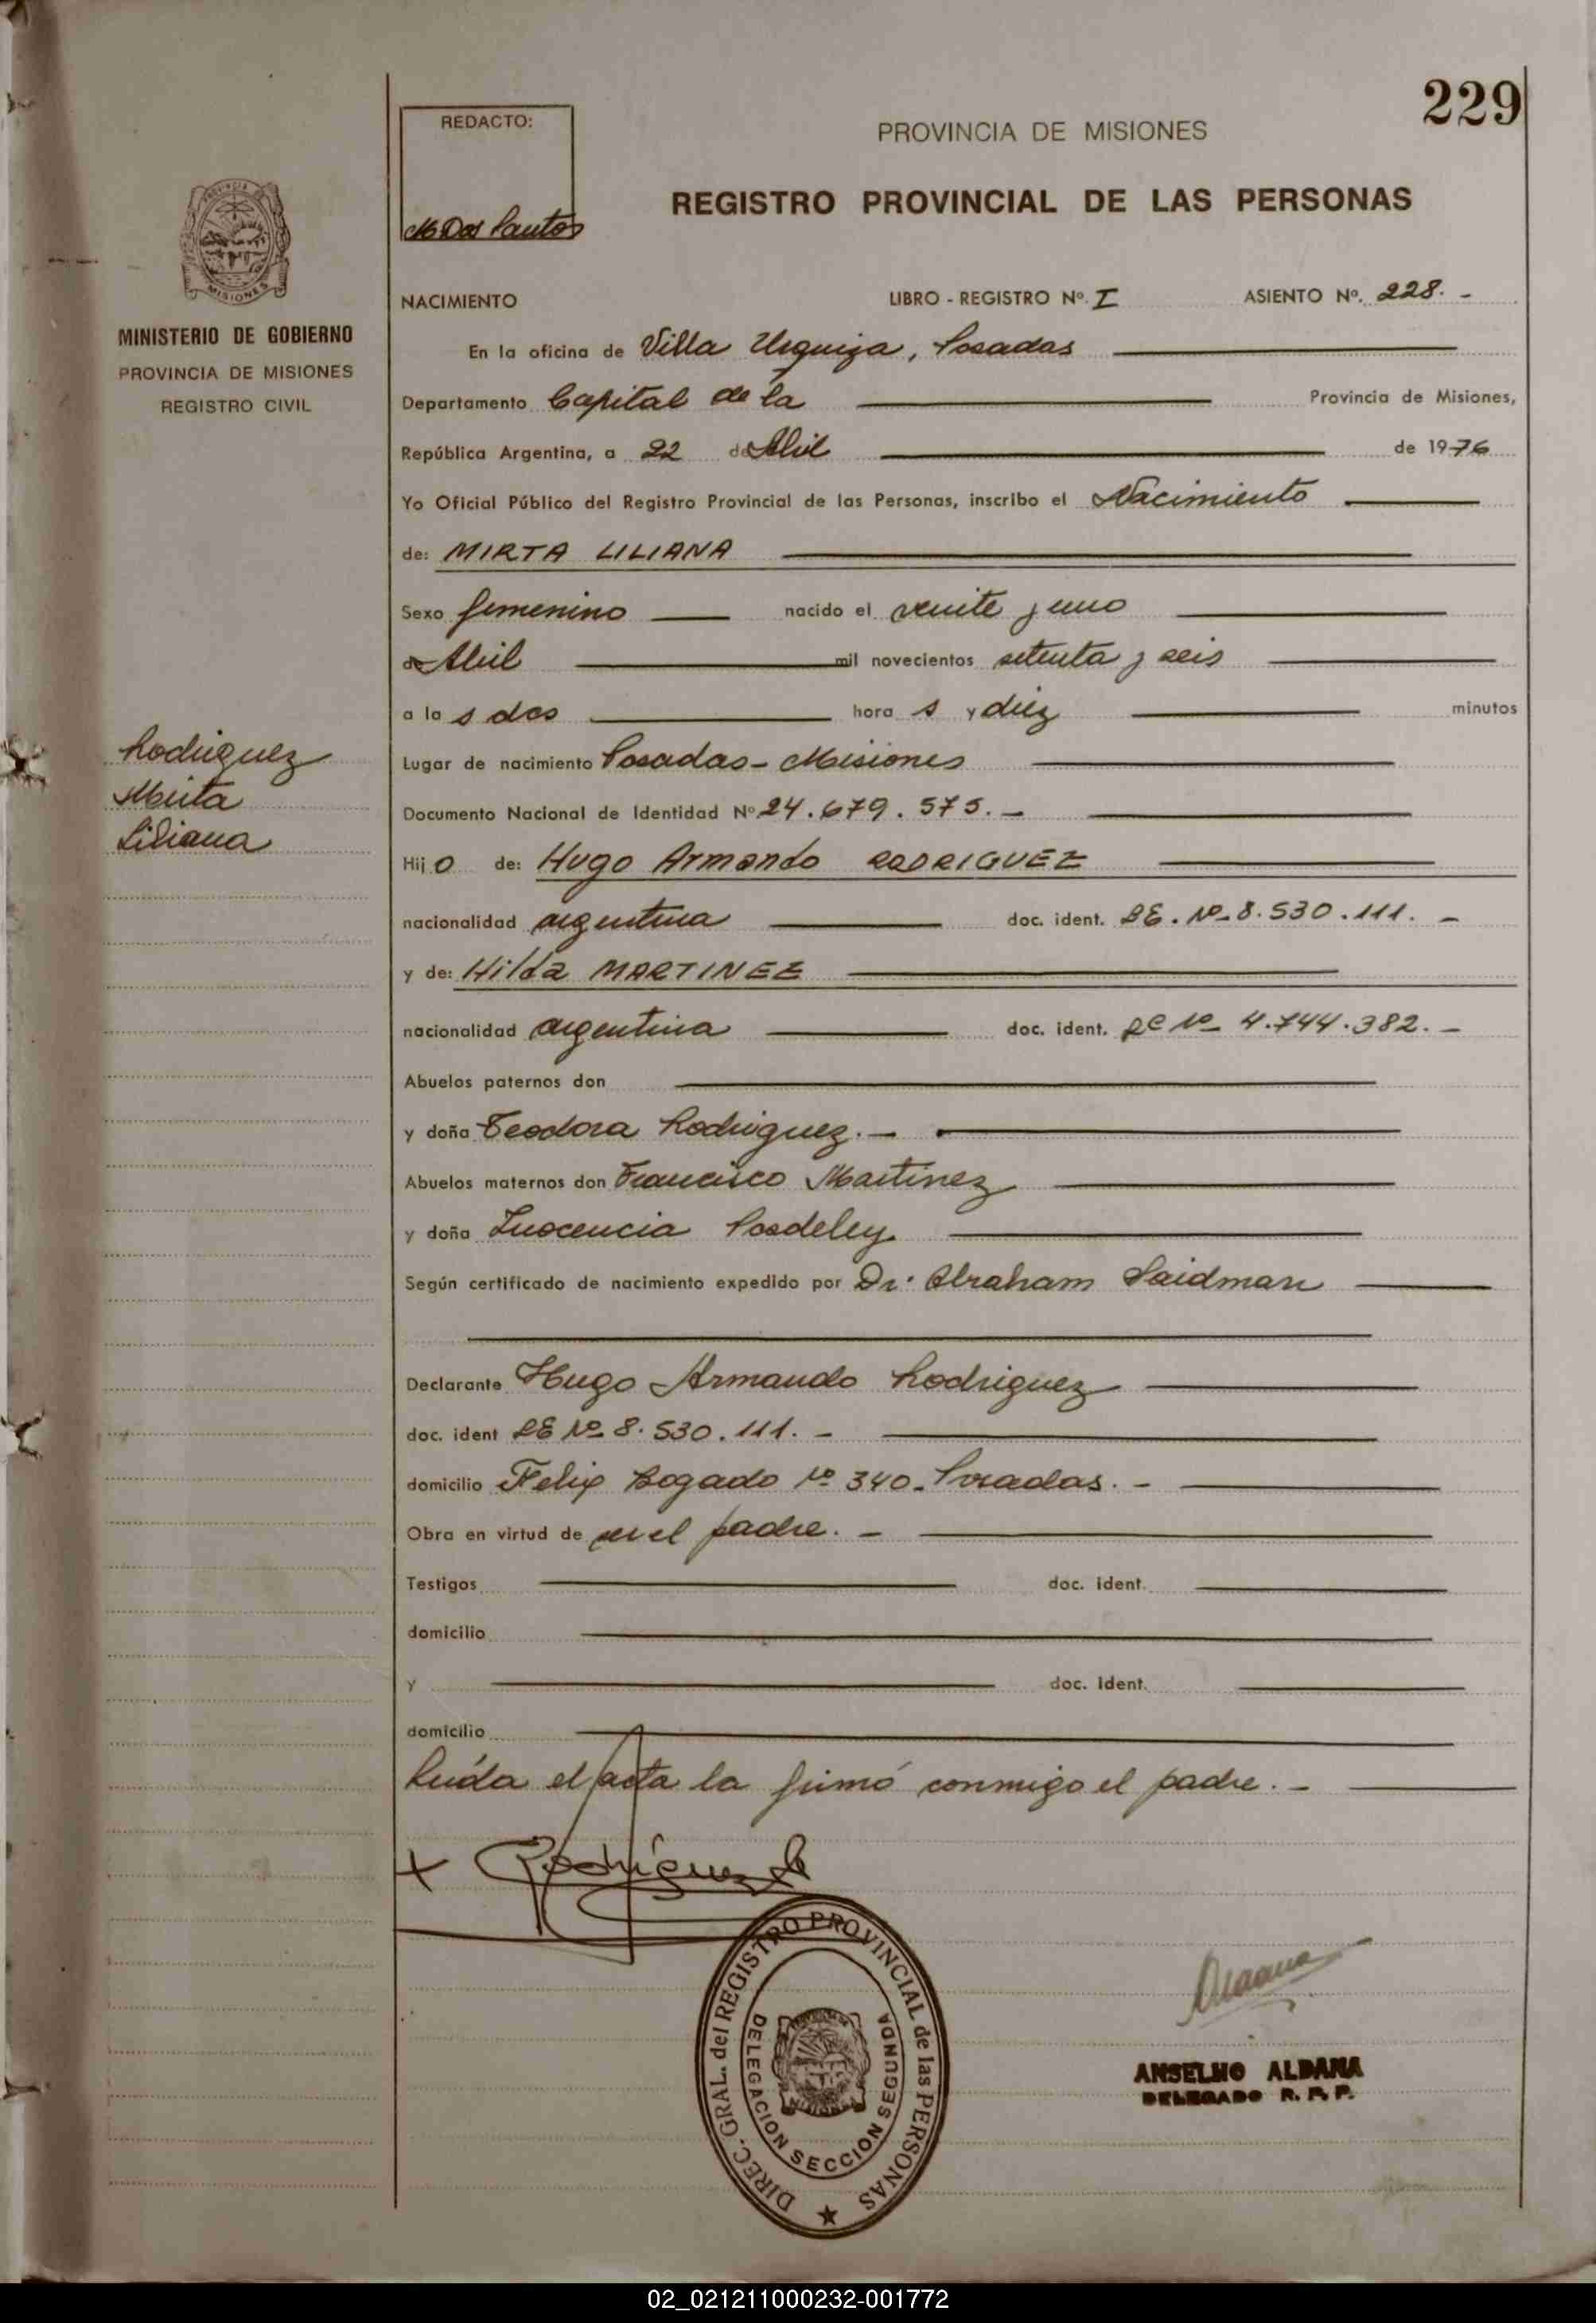 229
REDACTO:
M Dos Santos
PROVINCIA DE MISIONES
REGISTRO PROVINCIAL DE LAS PERSONAS
PROVINCIA DE
MISIONES
MINISTERIO DE GOBIERNO
PROVINCIA DE MISIONES
REGISTRO CIVIL
NACIMIENTO LIBRO - REGISTRO Nº. I ASIENTO Nº. 228. -
En la oficina de Villa Urquiza, Posadas
Departamento Capital de la Provincia de Misiones,
República Argentina, a 22 de Abril de 1976
Yo Oficial Público del Registro Provincial de las Personas, inscribo el Nacimiento
de: MIRTA LILIANA
Sexo femenino nacido el veinte y uno
de Abril mil novecientos setenta y seis
a la s dos hora s y diez minutos
Rodriguez
Mirta
Liliana
Lugar de nacimiento Posadas - Misiones
Documento Nacional de Identidad Nº 24.679.575. -
Hij o de: Hugo Armando RODRIGUEZ
nacionalidad argentina doc. ident. LE. Nº 8.530.111. -
y de: Hilda MARTINEZ
nacionalidad argentina doc. ident. LC Nº 4.744.382. -
Abuelos paternos don
y doña Teodora Rodriguez. -
Abuelos maternos don Francisco Martinez
y doña Inocencia Posdeley
Según certificado de nacimiento expedido por Dr. Abraham Saidman
Declarante Hugo Armando Rodriguez
doc. ident LE Nº 8.530.111. -
domicilio Felix Bogado Nº 340 - Posadas. -
Obra en virtud de ser el padre. -
Testigos doc. ident.
domicilio
y doc. Ident.
domicilio
Leída el acta la firmó conmigo el padre. -
+ Rodríguez
DIREC. GRAL. del REGISTRO PROVINCIAL de las PERSONAS
DELEGACION SECCION SEGUNDA
MISIONES
Aldana
ANSELMO ALDANA
DELEGADO R. P. P.
02_021211000232-001772